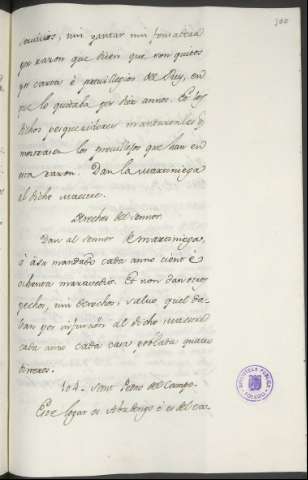 300
servicios, nin yantar nin fonsadera
por razon que dicen que son quitos
por carta è previllegios del Rey, en
que lo quitaba por diez annos. Et los
dichos pesqueridores mandaronles q̃
mostrasen los previllejos que han en
esta razon. Dan la Martiniega
al dicho Maestre.
Derechos del sennor.
Dan al sennor de martiniega,
ó a su mandado cada anno cient è
ochenta maravedis. Et non dan otros
pechos, nin derechos, salvo quel da-
ban por infurcion al dicho Maestre
cada anno cada casa poblada quatro
dineros.
104. Sant Pedro del Campo.
Este logar es Abadengo è es del cas-
BIBLIOTECA PUBLICA
TOLEDO